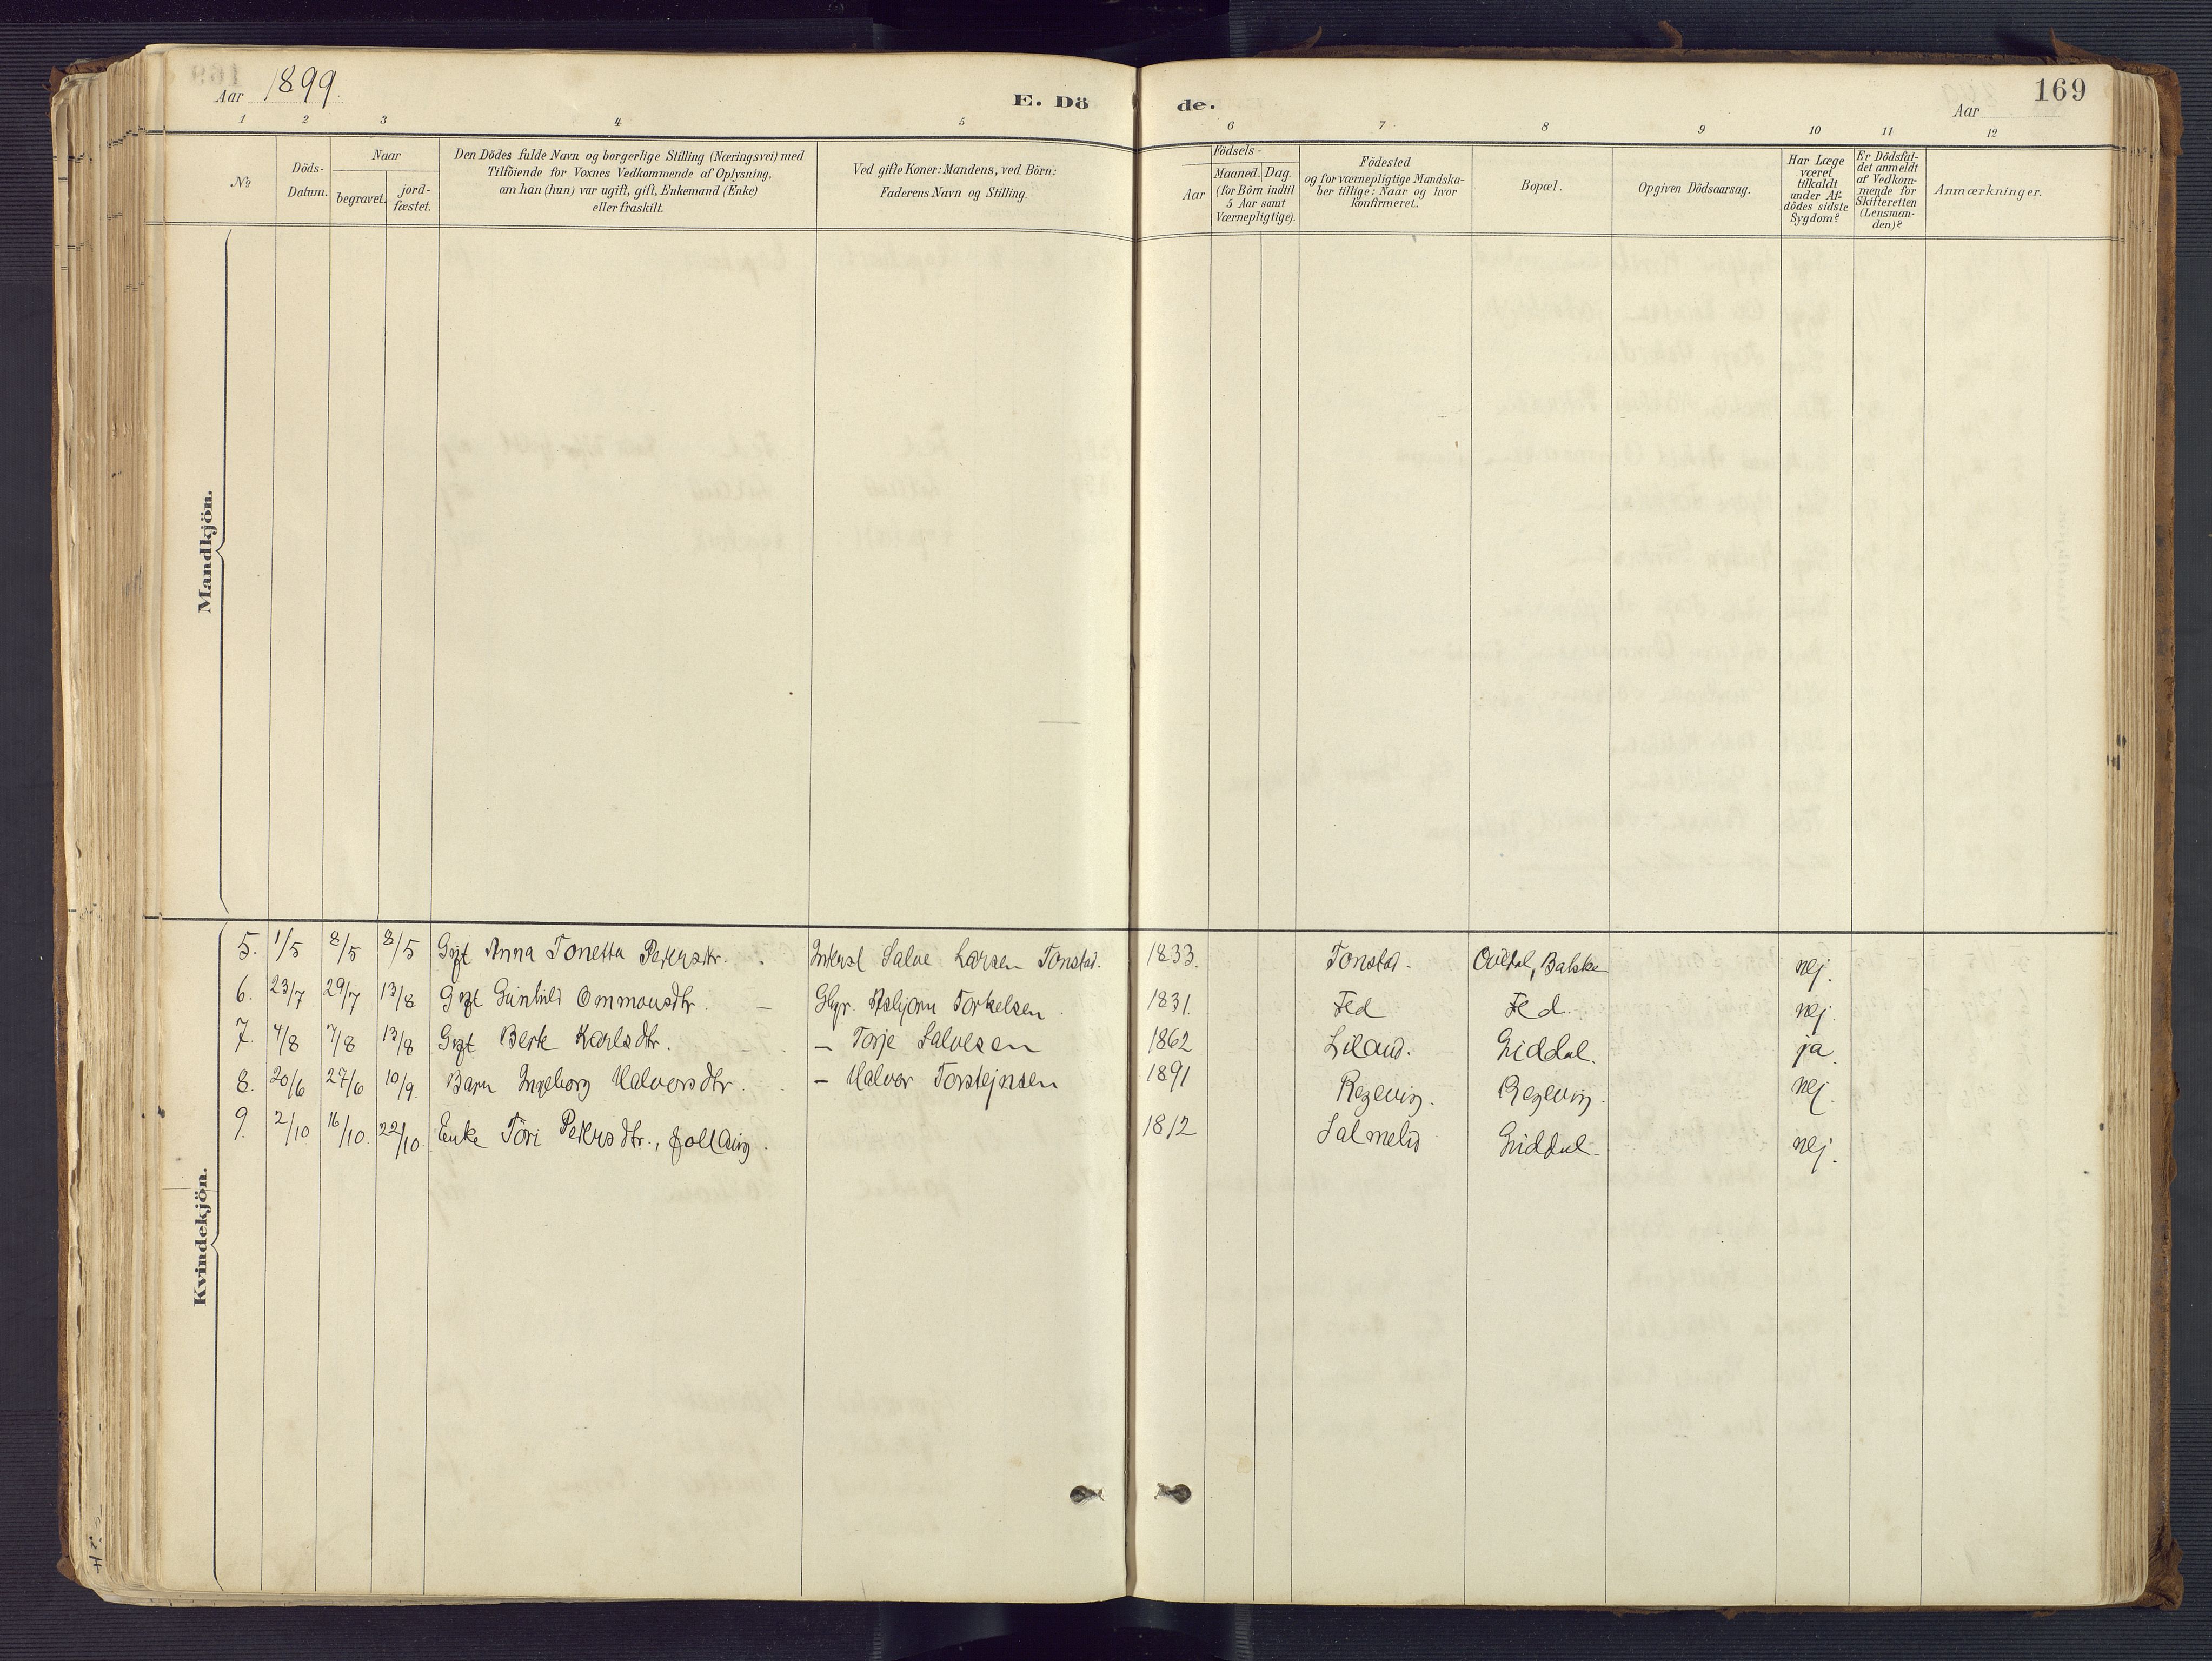 Aar 1899.
E. Dö de.
Aar
169
1 2 3 4 5 6 7 8 9 10 11 12
No
Döds-Datum.
Naar
begravet.
jord-fæstet.
Den Dödes fulde Navn og borgerlige Stilling (Næringsvei) med
Tilföiende for Voxnes Vedkommende af Oplysning,
om han (hun) var ugift, gift, Enkemand (Enke)
eller fraskilt.
Ved gifte Koner: Mandens, ved Börn:
Faderens Navn og Stilling.
Födsels-
Aar
Maaned. Dag.
(for Börn indtil
5 Aar samt
Værnepligtige).
Födested
og for værnepligtige Mandska-
ber tillige: Naar og hvor
konfirmeret.
Bopæl.
Opgiven Dödsaarsag.
Har Læge
været
tilkaldt
under Af-
dödes sidste
Sygdom?
Er Dödsfal-
det anmeldt
af Vedkom-
mende for
Skifteretten
(Lensman-
den)?
Anmærkninger.
Mandkjön.
Kvindekjön.
5. 1/5 8/5 8/5 Gift Anna Tonetta Petersdtr. Salve Larsen Tonstad. 1833. Tonstad. nej.
6. 23/7 29/7 13/8 Gift Gunhild Ommonsdtr. – Gbgr. Asbjørn Torkelsen 1831. Fed Fed. nej.
7. 4/8 7/8 13/8 Gift Berte Karlsdtr. – – Torje Salvesen 1862 Liland. Guddal. ja
8. 20/6 27/6 10/9. Barn Ingeborg Halvorsdtr. – Halvor Torstejnsen 1891 Regeving. Regeving. nej.
9. 2/10 16/10. 22/10. Enke Töri Petersdtr., 1812 Salmelid Guddal. nej.